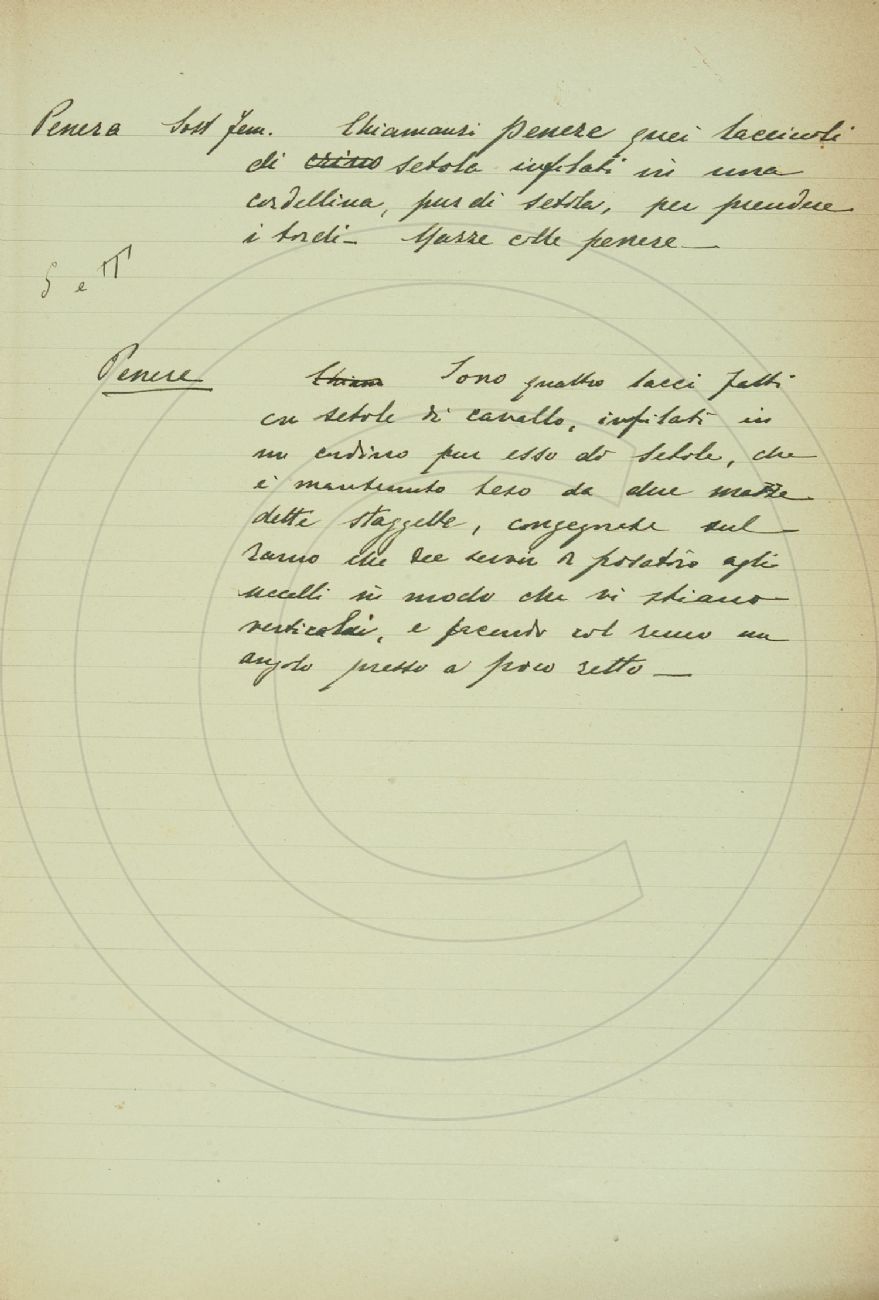 Penera Sost fem. Chiamansi penere quei lacciuoli
di crino setola infilati in una
cordellina, pur di setola, per prendere
i tordi – Mazze colle penere —
G e T
Penere Chiam Sono quattro lacci fatti
con setole di cavallo, infilati in
un cordino pur esso di setole, che
è mantenuto teso da due mazze
dette staggette, congegnate sul
ramo che dee servir di posatoio agli
uccelli in modo che vi stiano
verticali, e facendo col ramo un
angolo presso a poco retto —